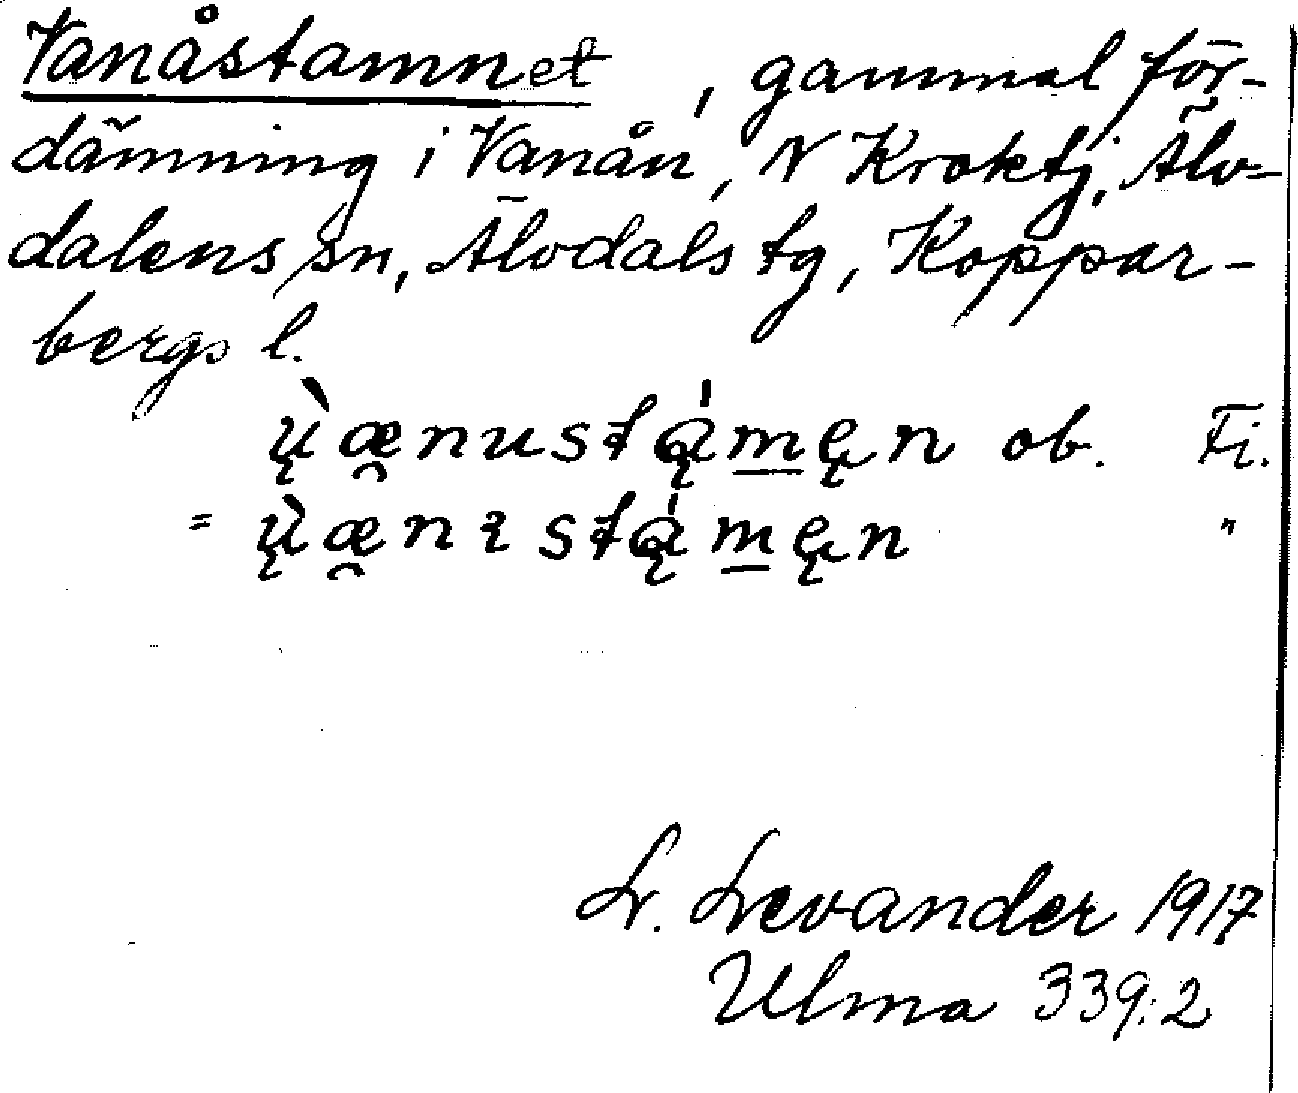 Vanåstamnet, gammal för-
dämning i Vanån, N Kroktj. Älv-
dalens sn, Älvdals tg, Koppar-
bergs l.
ų̀æ̯nustą́m̲ęn ob. Fi.
= ų̀æ̯nıstą́m̲ęn "
L. Levander 1917
Ulma 339:2